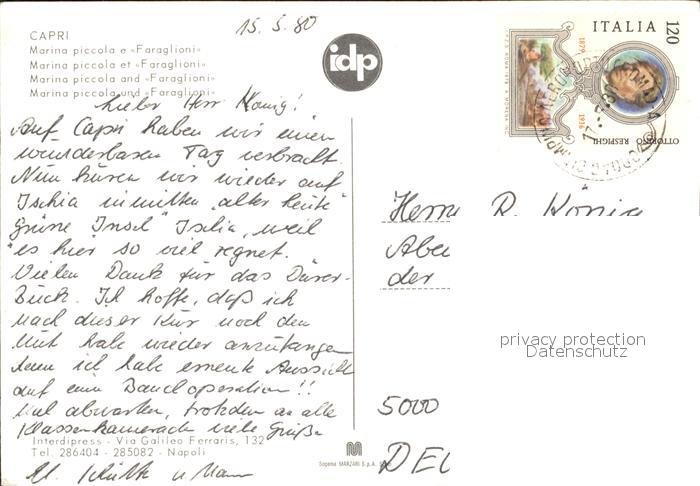 15.5.80
CAPRI
Marina piccola e «Faraglioni»
Marina piccola et «Faraglioni»
Marina piccola and «Faraglioni»
Marina piccola und «Faraglioni»
idp
ITALIA
120
1879
1936
OTTORINO RESPIGHI
Lieber Herr König!
Auf Capri haben wir einen
wunderbaren Tag verbracht.
Nun kuren wir wieder auf
Ischia inmitten "alter Leute"
"Grüne Insel" Ischia, weil
es hier so viel regnet.
Vielen Dank für das Dürer-
Buch. Ich hoffe, daß ich
nach dieser Kur noch den
Mut habe wieder anzufangen
denn ich habe erneute Aussicht
auf eine Bauchoperation!!
Mal abwarten, trotzdem an alle
Klassenkameraden viele Grüße
Herrn R. König
der
5000
privacy protection
Datenschutz
Interdipress - Via Galileo Ferraris, 132
Tel. 286404 - 285082 - Napoli
Sogema MARZARI S.p.A.
u Mann